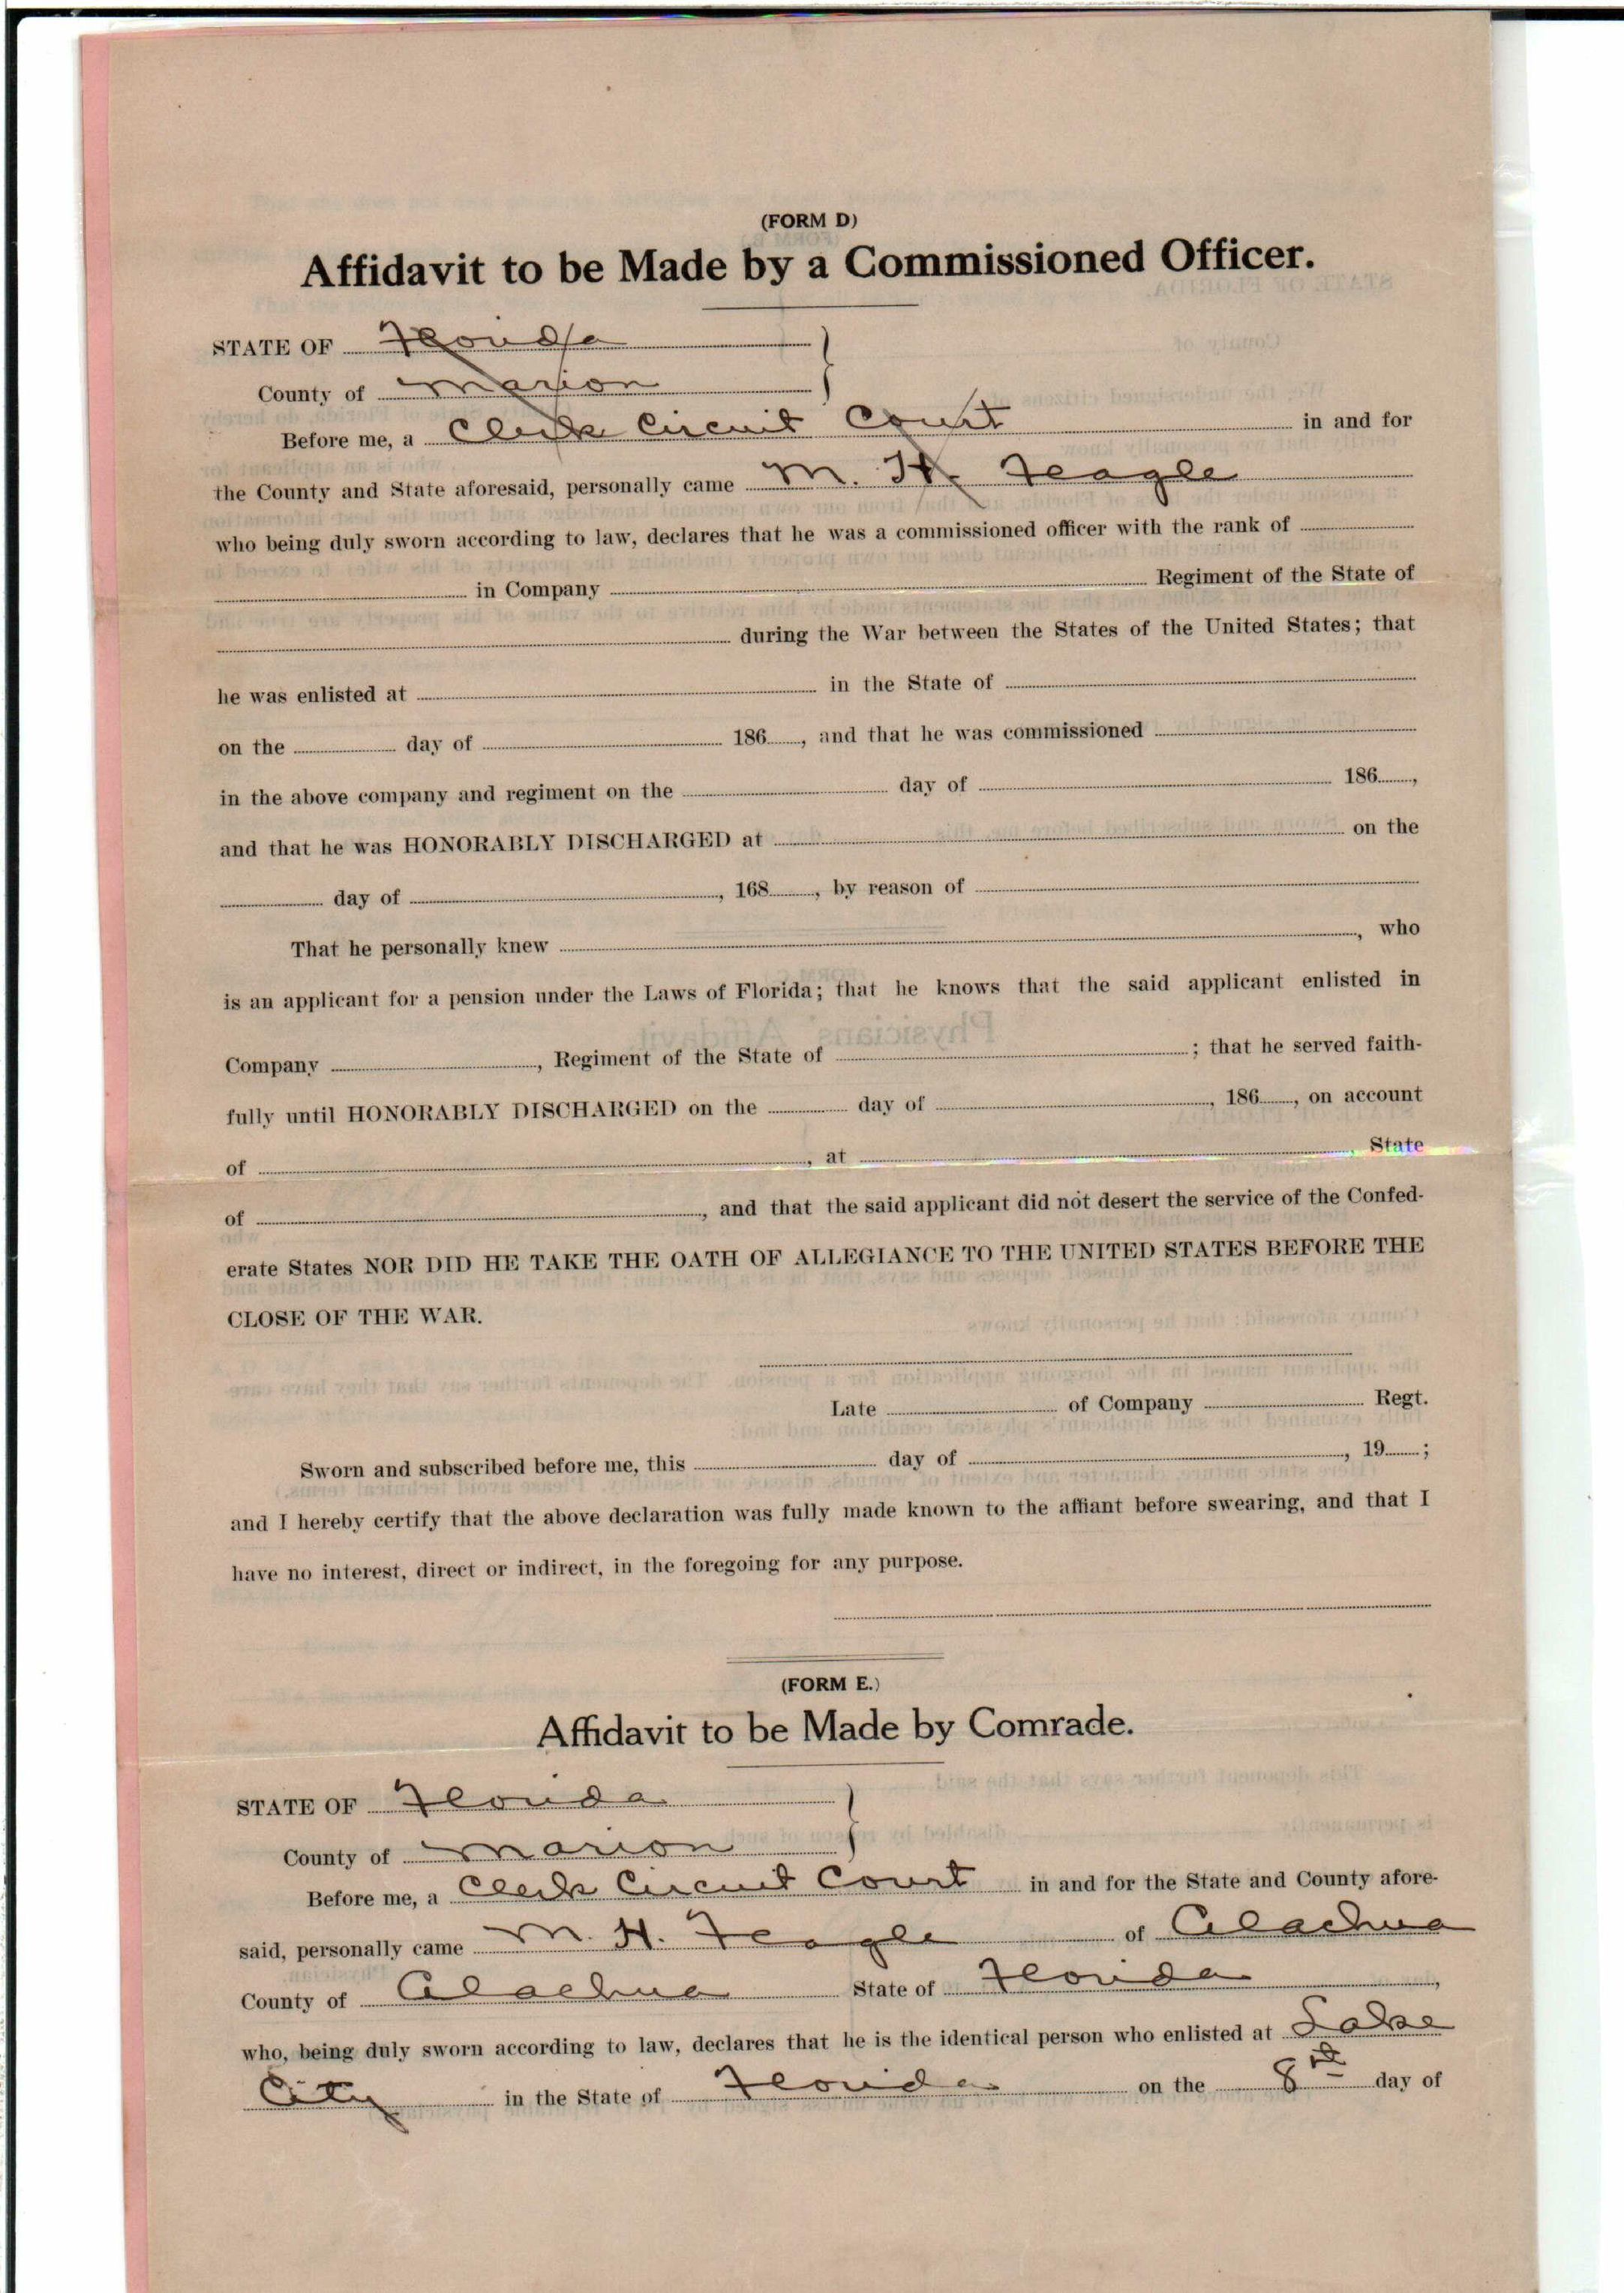 (FORM D)
Affidavit to be Made by a Commissioned Officer.
STATE OF Florida
County of Marion
Before me, a Clerk Circuit Court in and for
the County and State aforesaid, personally came M. H. Feagle
who being duly sworn according to law, declares that he was a commissioned officer with the rank of
in Company Regiment of the State of
during the War between the States of the United States; that
he was enlisted at in the State of
on the day of 186, and that he was commissioned
in the above company and regiment on the day of 186,
and that he was HONORABLY DISCHARGED at on the
day of, 168, by reason of
That he personally knew, who
is an applicant for a pension under the Laws of Florida; that he knows that the said applicant enlisted in
Company, Regiment of the State of; that he served faith-
fully until HONORABLY DISCHARGED on the day of, 186, on account
of, at, State
of, and that the said applicant did not desert the service of the Confed-
erate States NOR DID HE TAKE THE OATH OF ALLEGIANCE TO THE UNITED STATES BEFORE THE
CLOSE OF THE WAR.
Late of Company Regt.
Sworn and subscribed before me, this day of, 19;
and I hereby certify that the above declaration was fully made known to the affiant before swearing, and that I
have no interest, direct or indirect, in the foregoing for any purpose.
(FORM E.)
Affidavit to be Made by Comrade.
STATE OF Florida
County of Marion
Before me, a Clerk Circuit Court in and for the State and County afore-
said, personally came M. H. Feagle of Alachua
County of Alachua State of Florida,
who, being duly sworn according to law, declares that he is the identical person who enlisted at Lake
City in the State of Florida on the 8th day of